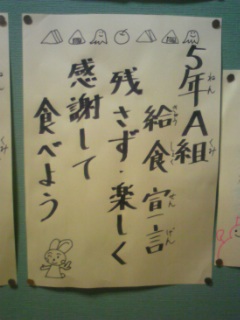 5年A組
給食宣言
残さず・楽しく
感謝して
食べよう